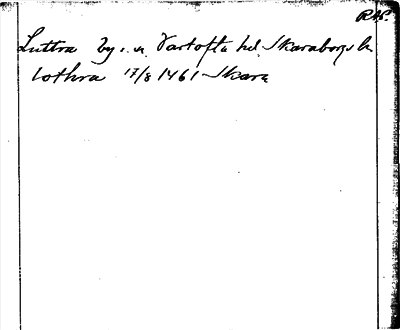 RAP.
Luttra by o. sn Vartofta hd. Skaraborgs l.
lothra 17/8 1461 Skara